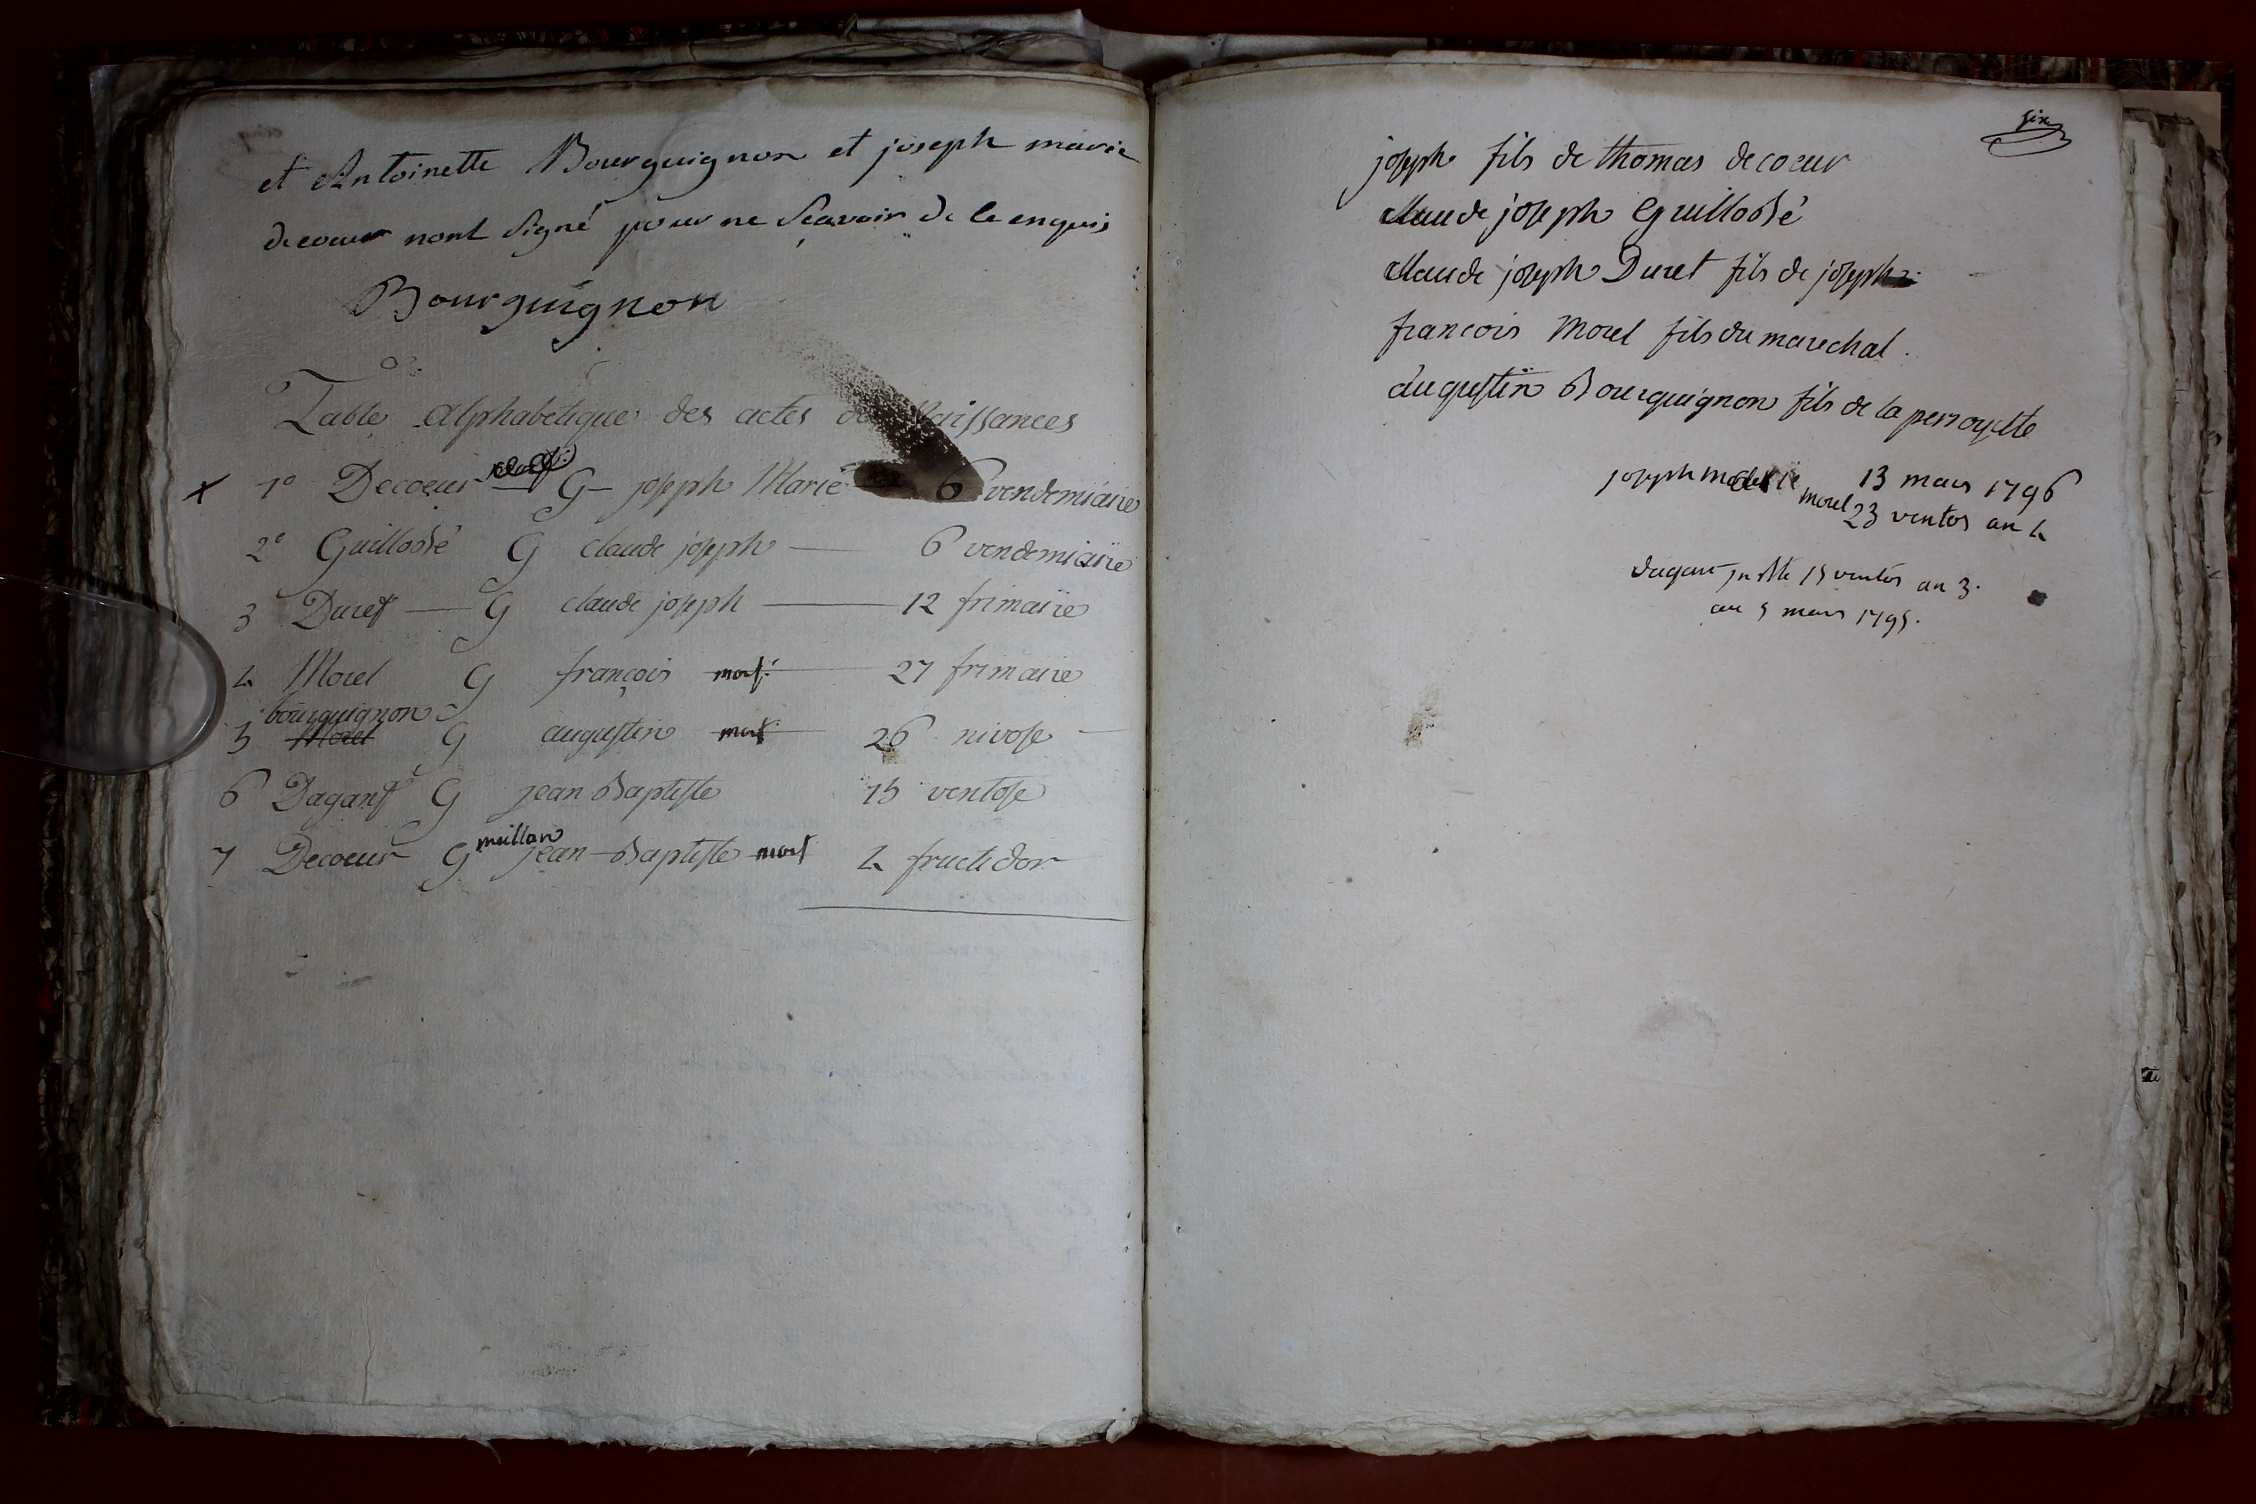 et Antoinette Bourguignon et joseph marie
decoeur nont signé pour ne Scavoir de le enquis
Bourguignon
Table Alphabetique des actes de Naissances
1° Decoeur G joseph Marie 6 vendemiaire
2° Guillobé G claude joseph 6 vendemiaire
3 Duret G claude joseph 12 frimaire
4 Morel G françois mort 27 frimaire
bourguignon
5 Morel G augustin mort 26 nivose
6 Dagant G jean Baptiste 15 ventose
7 Decoeur G jean Baptiste mort 4 fructidor
six
joseph fils de thomas decoeur
claude joseph Guillobé
claude joseph Duret fils de joseph
francois Morel fils du marechal
augustin Bourguignon fils de la perroyette
joseph 13 mars 1796
morel 23 ventos an 4
dagant 15 ventos an 3.
au 5 mars 1795.